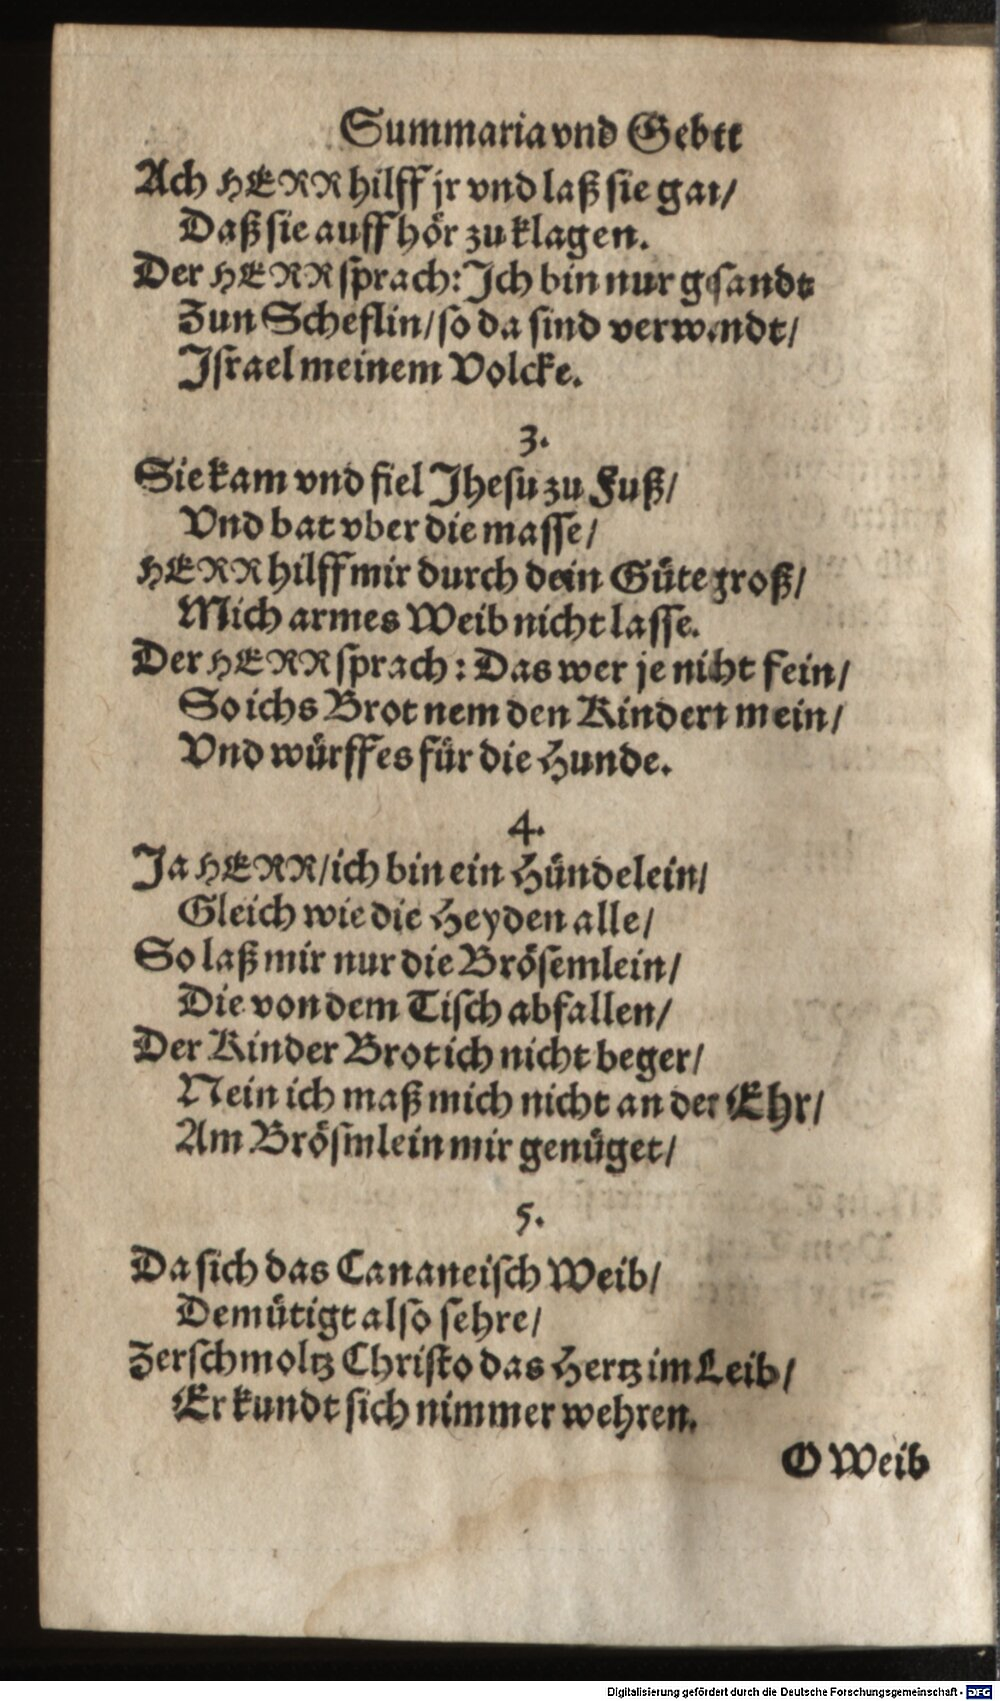 Summaria vnd Gebtt
Ach HERR hilff jr vnd laß sie gan/
Daß sie auff hör zu klagen.
Der HERR sprach: Ich bin nur gsandt
Zun Scheflin/ so da sind verwandt/
Israel meinem Volcke.
3.
Sie kam vnd fiel Jhesu zu Fuß/
Vnd bat vber die masse/
HERR hilff mir durch dein Güte groß/
Mich armes Weib nicht lasse.
Der HERR sprach: Das wer je nicht fein/
So ichs Brot nem den Kindern mein/
Vnd würff es für die Hunde.
4.
Ja HERR/ ich bin ein Hündelein/
Gleich wie die Heyden alle/
So laß mir nur die Brösemlein/
Die von dem Tisch abfallen/
Der Kinder Brot ich nicht beger/
Nein ich maß mich nicht an der Ehr/
Am Brösmlein mir genüget/
5.
Da sich das Cananeisch Weib/
Demütigt also sehre/
Zerschmoltz Christo das Hertz im Leib/
Er kundt sich nimmer wehren.
O Weib
Digitalisierung gefördert durch die Deutsche Forschungsgemeinschaft - DFG